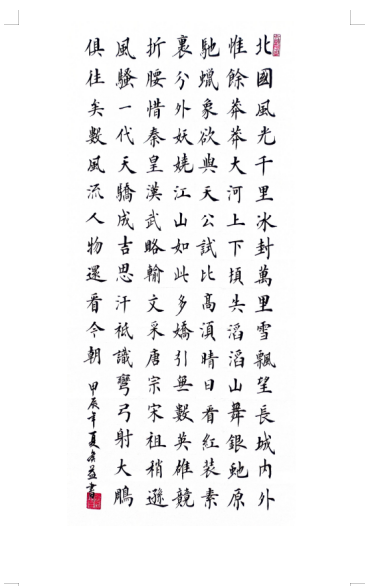 北國風光千里冰封萬里雪飄望長城内外
惟餘莽莽大河上下頓失滔滔山舞銀虵原
馳蠟象欲與天公試比高須晴日看紅装素
裹分外妖嬈江山如此多嬌引無數英雄競
折腰惜秦皇漢武略輸文采唐宗宋祖稍遜
風騷一代天驕成吉思汗祗識彎弓射大鵰
俱往矣數風流人物還看今朝 甲辰年夏益書